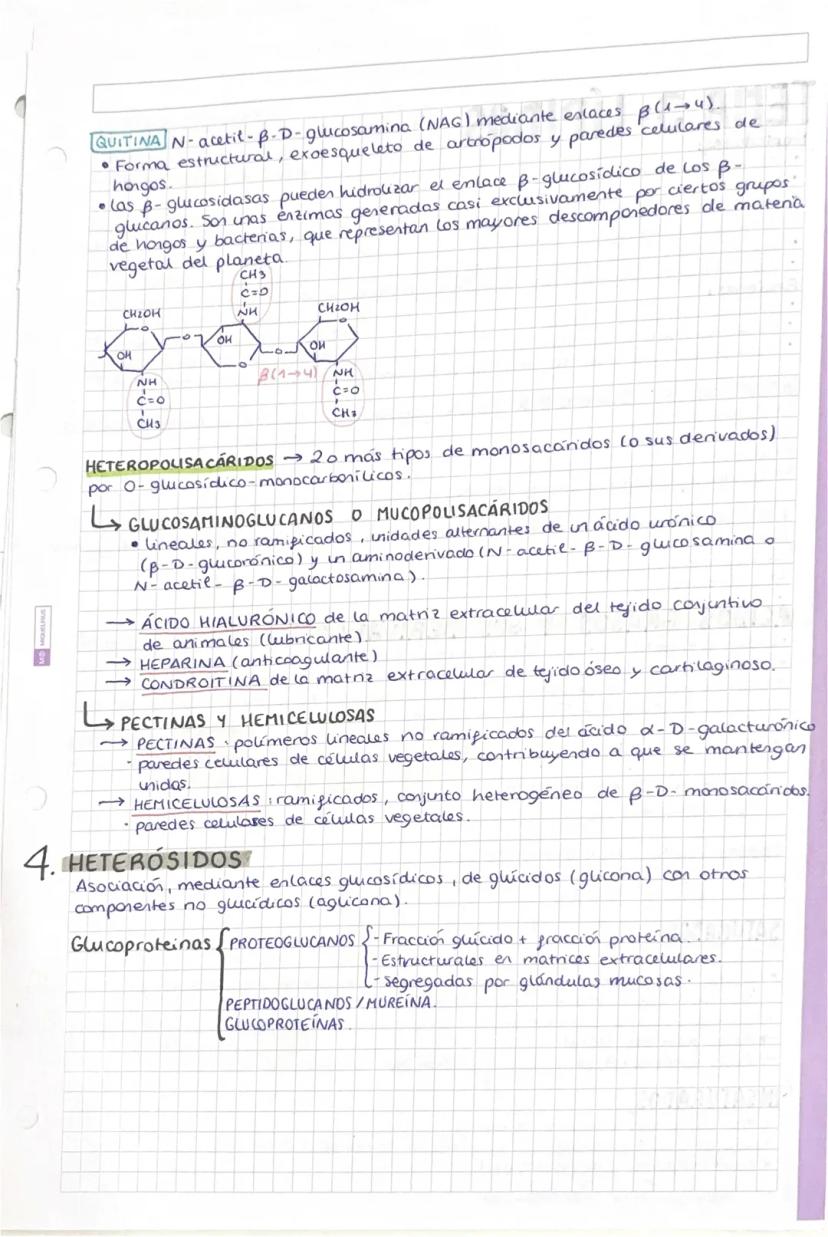 QUITINA N-acetil-β-D-glucosamina (NAG) mediante enlaces β(1→4).
• Forma estructural, exoesqueleto de artrópodos y paredes celulares de
hongos.
• Las β-glucosidasas pueden hidrolizar el enlace β-glucosídico de los β-
glucanos. Son unas enzimas generadas casi exclusivamente por ciertos grupos
de hongos y bacterias, que representan los mayores descomponedores de materia
vegetal del planeta.
CH3
C=O
CH2OH NH CH2OH
O OH O
OH O O OH
NH O β(1→4) NH
C=O C=O
CH3 CH3
HETEROPOLISACÁRIDOS → 2 o más tipos de monosacáridos (o sus derivados)
por O-glucosídico-monocarbonílicos.
↳ GLUCOSAMINOGLUCANOS O MUCOPOLISACÁRIDOS
• Lineales, no ramificados, unidades alternantes de un ácido urónico
(β-D-glucorónico) y un aminoderivado (N-acetil-β-D-glucosamina o
N-acetil-β-D-galactosamina).
→ ÁCIDO HIALURÓNICO de la matriz extracelular del tejido conjuntivo
de animales (lubricante).
→ HEPARINA (anticoagulante)
→ CONDROITINA de la matriz extracelular de tejido óseo y cartilaginoso.
MIQUELRIUS
↳ PECTINAS Y HEMICELULOSAS
→ PECTINAS: polímeros lineales no ramificados del ácido α-D-galacturónico
· paredes celulares de células vegetales, contribuyendo a que se mantengan
unidas.
→ HEMICELULOSAS: ramificados, conjunto heterogéneo de β-D-monosacáridos.
· paredes celulares de células vegetales.
4. HETERÓSIDOS
Asociación, mediante enlaces glucosídicos, de glúcidos (glicona) con otros
componentes no glucídicos (aglicona).
Glucoproteinas { PROTEOGLUCANOS { - Fracción glúcido + fracción proteína..
- Estructurales en matrices extracelulares.
- segregadas por glándulas mucosas.
PEPTIDOGLUCANOS / MUREÍNA.
GLUCOPROTEÍNAS.